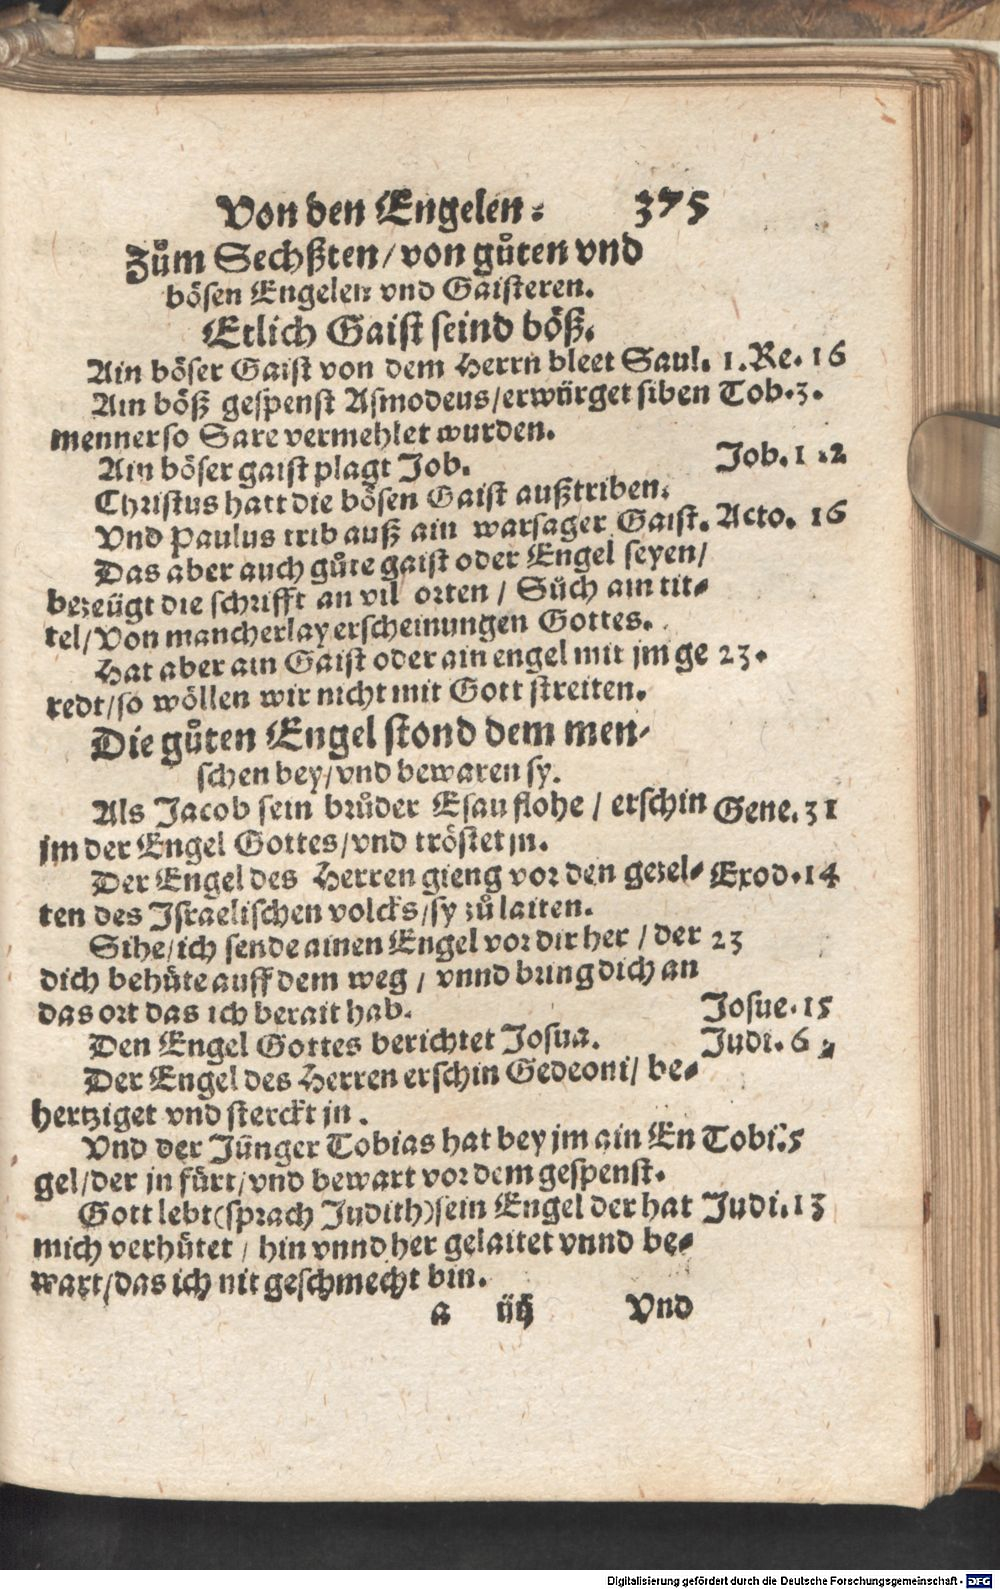 Von den Engelen. 375
Zům Sechßten/von gůten vnd
bösen Engelen vnd Gaisteren.
Etlich Gaist seind böß.
Ain böser Gaist von dem Herrn bleet Saul. 1.Re. 16
Ain böß gespenst Asmodeus/erwürget siben Tob.3.
menner so Sare vermehlet wurden.
Ain böser gaist plagt Job. Job.1.2
Christus hatt die bösen Gaist außtriben.
Vnd Paulus trib auß ain warsager Gaist. Acto. 16
Das aber auch gůte gaist oder Engel seyen/
bezeügt die schrifft an vil orten / Sůch am tit⸗
tel/Von mancherlay erscheinungen Gottes.
Hat aber ain Gaist oder ain engel mit jm ge 23.
redt/so wöllen wir nicht mit Gott streiten.
Die gůten Engel stond dem men⸗
schen bey/vnd bewaren sy.
Als Jacob sein brůder Esau flohe / erschin Gene.31
jm der Engel Gottes/vnd tröstet jn.
Der Engel des Herren gieng vor den gezel⸗ Exod.14
ten des Israelischen volcks/sy zů laiten.
Sihe/ich sende ainen Engel vor dir her / der 23
dich behüte auff dem weg / vnnd bring dich an
das ort das ich berait hab. Josue.15
Den Engel Gottes berichtet Josua. Judi.6
Der Engel des Herren erschin Gedeoni/ be⸗
hertziget vnd sterckt jn.
Vnd der Jünger Tobias hat bey jm ain En Tobi.5
gel/der jn fürt/vnd bewart vor dem gespenst.
Gott lebt(sprach Judith)sein Engel der hat Judi.13
mich verhütet / hin vnnd her gelaitet vnnd be⸗
wart/das ich nit geschmecht bin.
a iiij Vnd
Digitalisierung gefördert durch die Deutsche Forschungsgemeinschaft - DFG